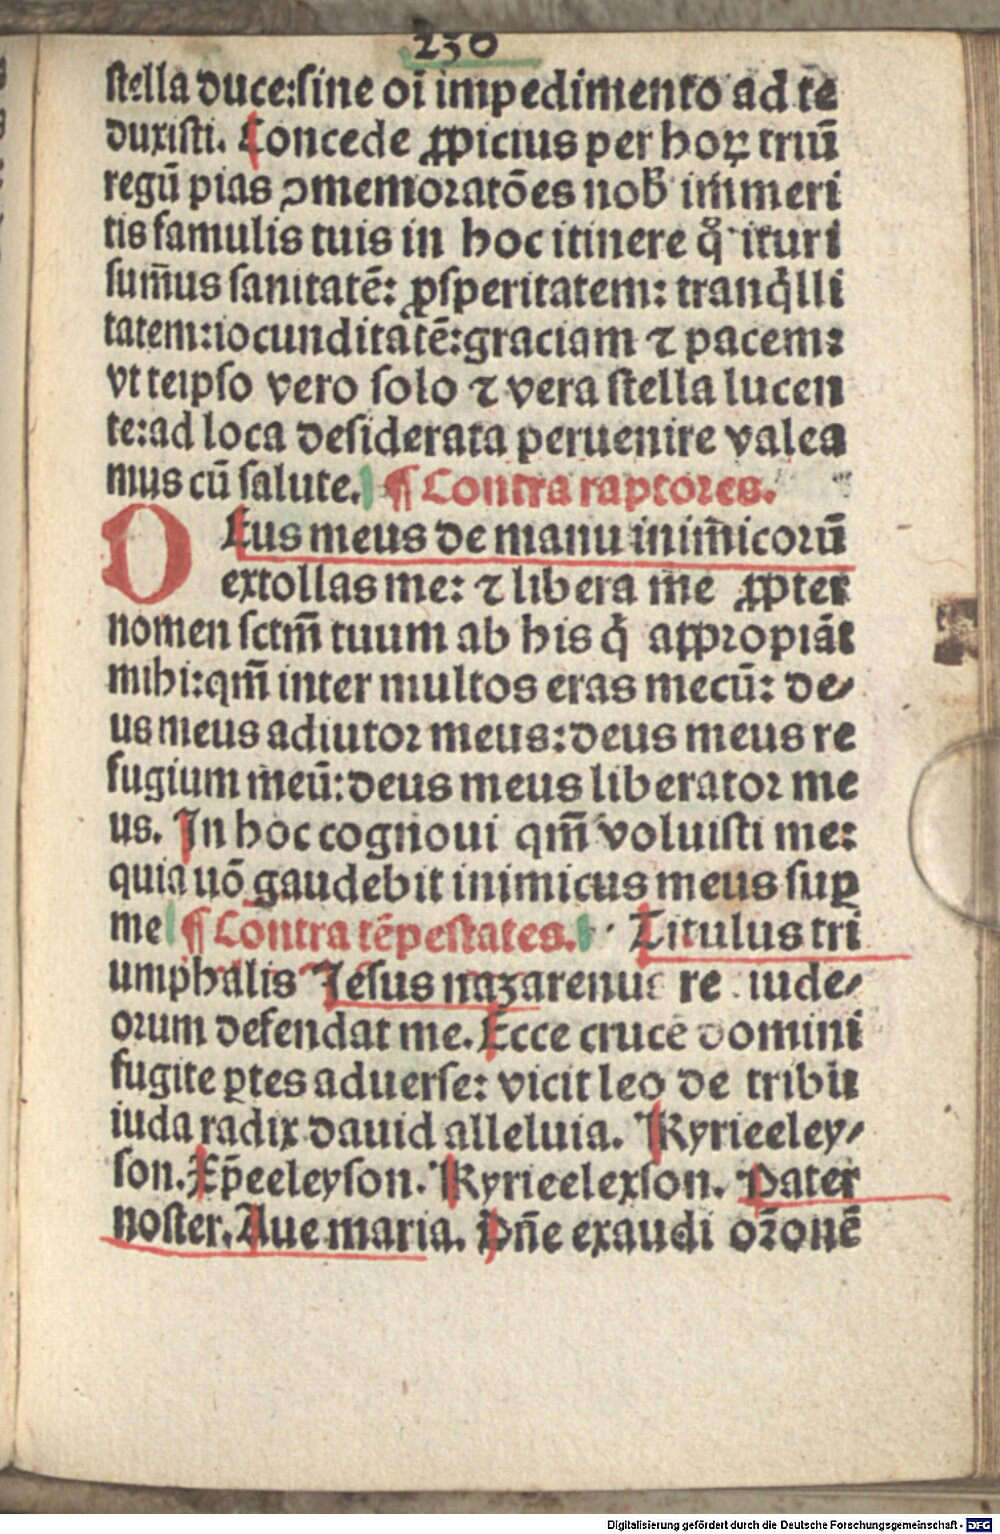 230
stella duce:sine oī impedimento ad te
duxisti. Concede ꝓpicius per hoꝝ triū
regū pias ↄmemoratōes nob̄ im̄meri
tis famulis tuis in hoc itinere q̄ ituri
sum̄us sanitatē: ꝓsperitatem: tranq̄lli
tatem:iocunditatē:graciam ⁊ pacem:
vt teipso vero solo ⁊ vera stella lucen
te:ad loca desiderata peruenire valea
mus cū salute. ¶ Contra raptores.
DEus meus de manu inim̄icorū
extollas me: ⁊ libera me ꝓpter
nomen sctm̄ tuum ab his q̄ appropiāt
mihi:qm̄ inter multos eras mecū: de⸗
us meus adiutor meus:deus meus re
fugium meū:deus meus liberator me
us. In hoc cognoui qm̄ voluisti me:
quia nō gaudebit inimicus meus suꝑ
me ¶ Contra tēpestates. Titulus tri
umphalis Jesus nazarenus re iude⸗
orum defendat me. Ecce crucē domini
fugite ꝑtes aduerse: vicit leo de tribu
iuda radix dauid alleluia. Kyrieeley⸗
son. Xp̄eeleyson. Kyrieelexson. Pater
noster. Aue maria. Dn̄e exaudi or̄onē
Digitalisierung gefördert durch die Deutsche Forschungsgemeinschaft - DFG